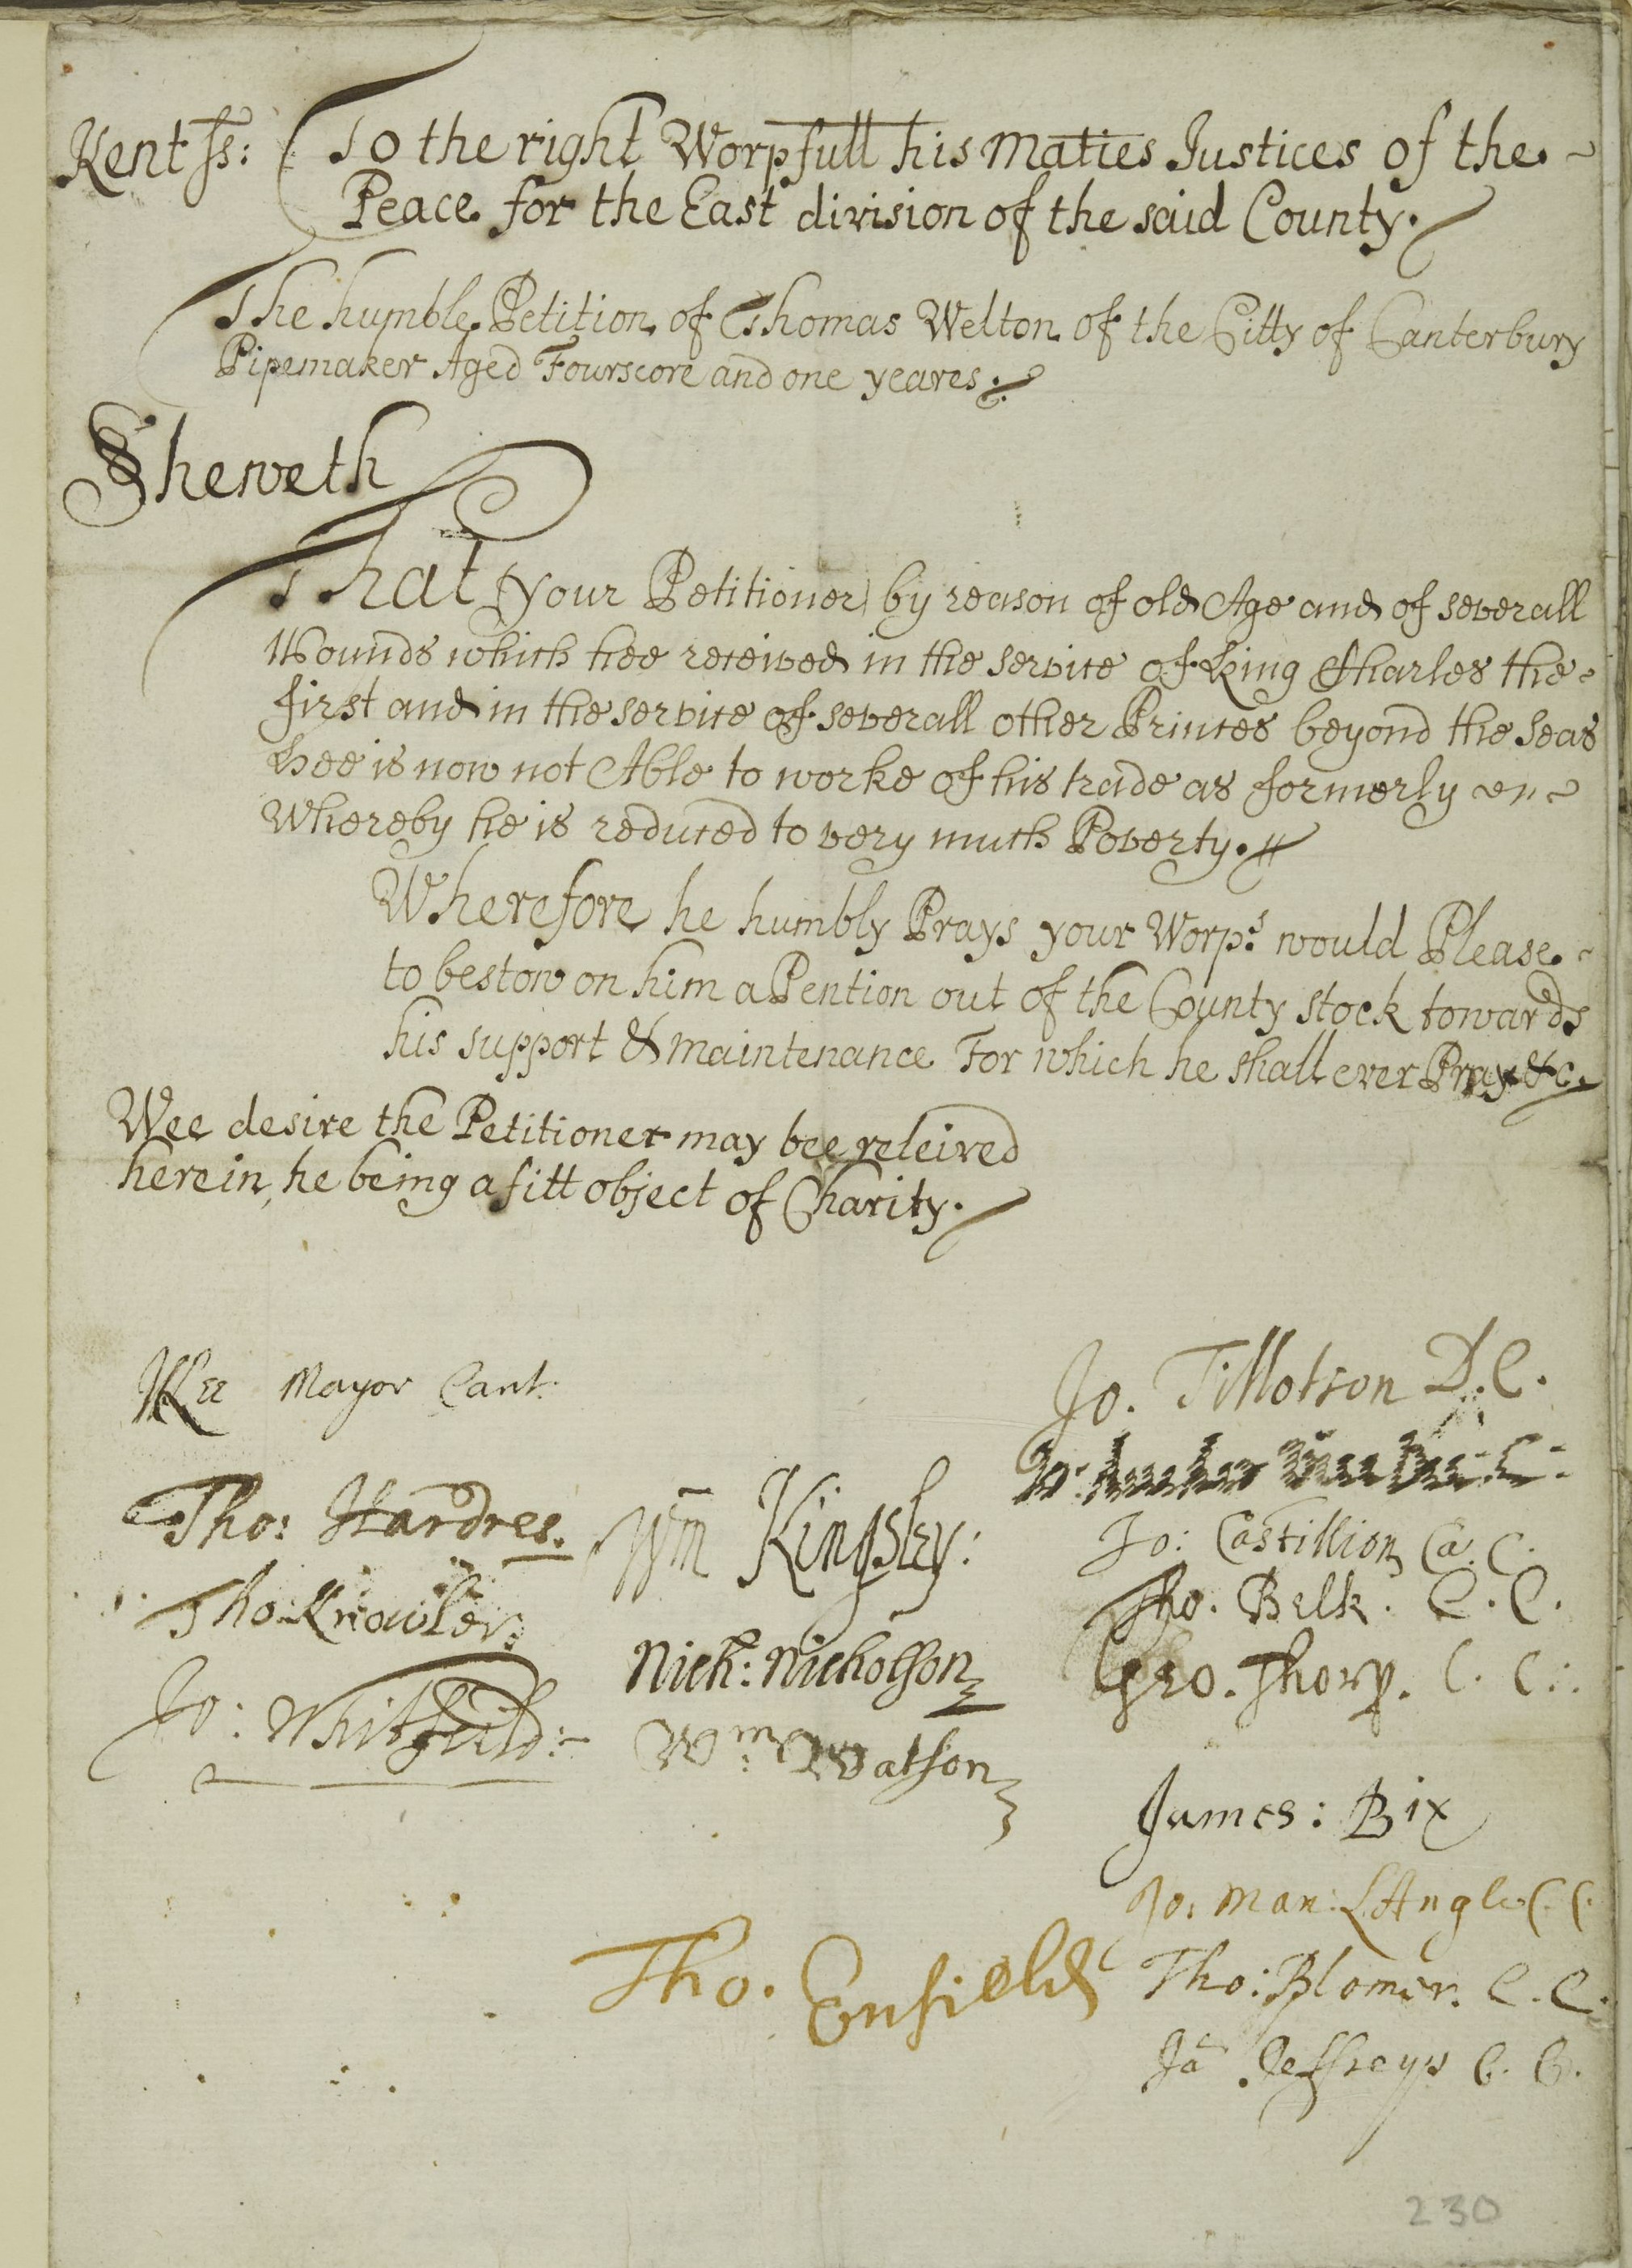 Kent ss: To the right Worpfull his Maties Justices of the
Peace for the East division of the said County.
The humble Petition of Thomas Welton of the Citty of Canterbury
Pipemaker Aged Fourscore and one yeares.
Sheweth
That your Petitioner by reason of old Age and of severall
Wounds which hee received in the service of King Charles the
first and in the service of severall other Princes beyond the Seas
hee is now not Able to worke of his trade as formerly
Whereby he is reduced to very much Poverty.
Wherefore he humbly Prays your Worps. would Please
to bestow on him a Pention out of the County stock towards
his support & maintenance For which he shall ever Pray &c.
Wee desire the Petitioner may bee releived
herein, he being a fitt object of Charity.
Mayor Cant.
Jo. Tillotson D.C.
Tho: Hardres.
Wm Kingsley:
Jo: Castillion Ca. C.
Tho Knowler.
Tho. Belk. C. C.
Nich: Nicholson
Geo. Thorp. C. C.
Jo: Whitfeild:
Wm: Watson
James: Bix
Jo: Man: LAngle C. C.
Tho. Enfield
Tho: Blomer. C. C.
Ja Jeffreys C. C.
230